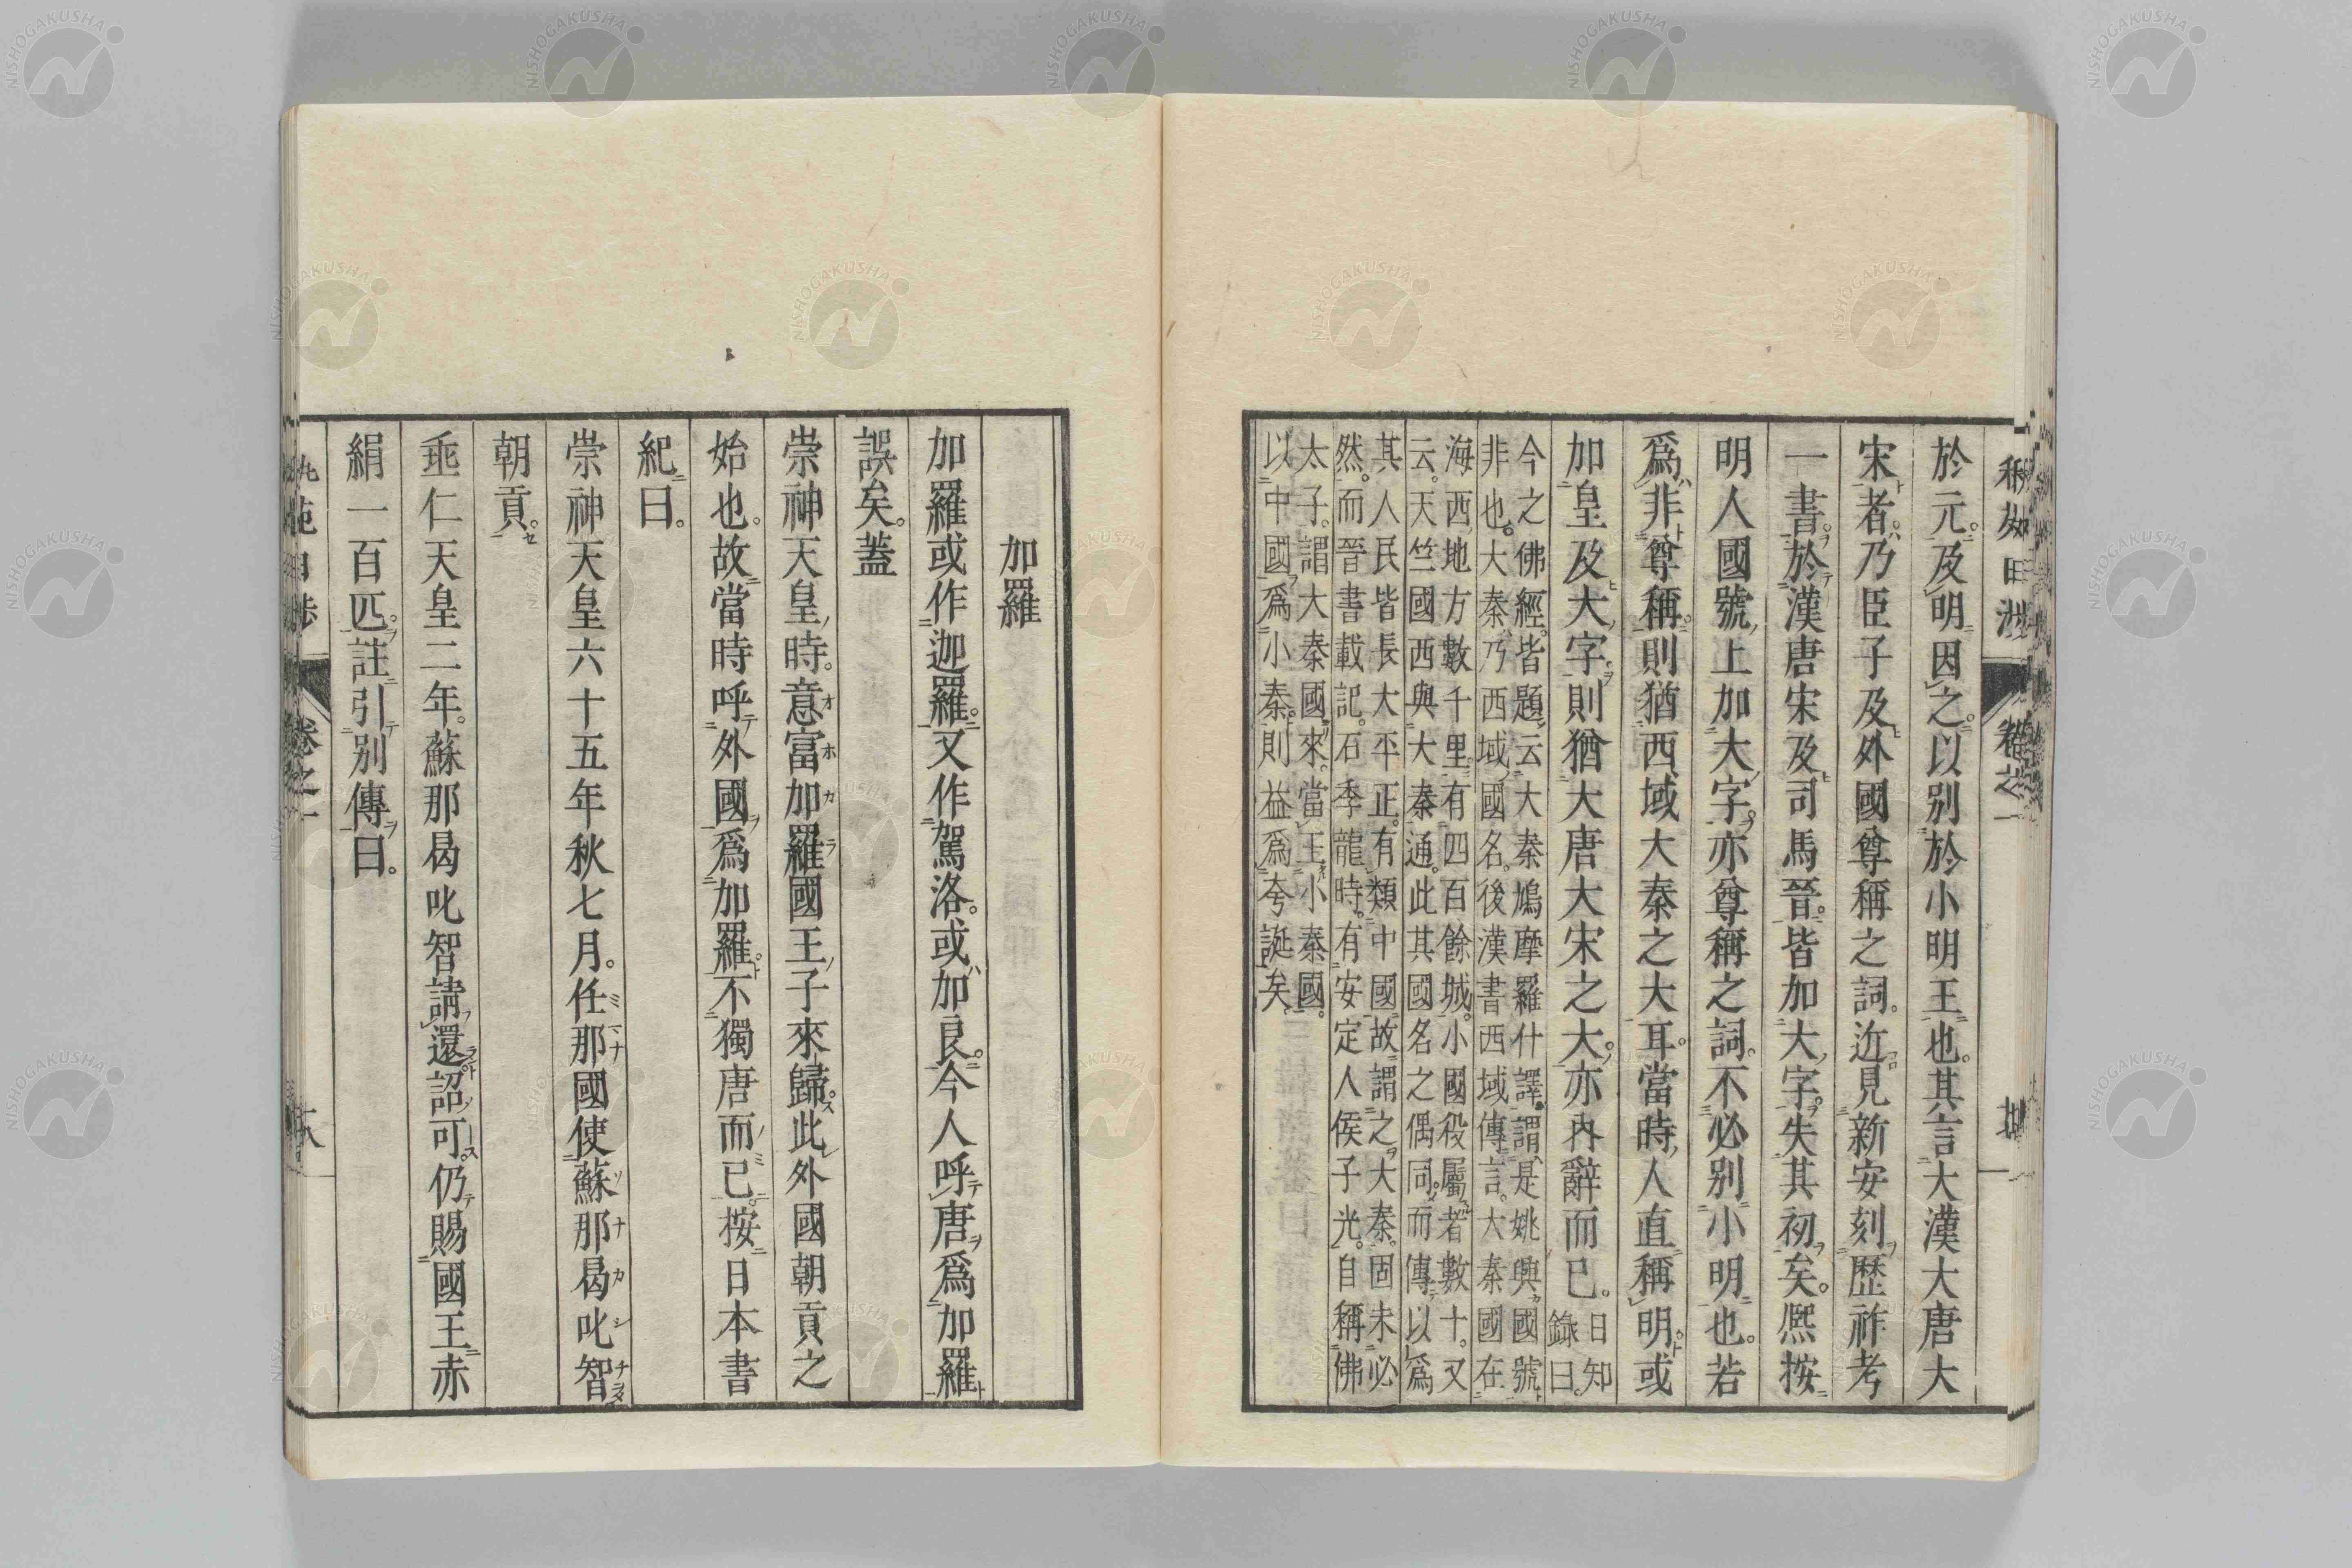 於元。及明因之。以別於小明王也。其言大漢大唐大
宋者。乃臣子及外國尊稱之詞。近見新安刻歷祚考
一書。於漢唐宋及司馬晉。皆加大字。失其初矣。熙按
明人國號上加大字。亦尊稱之詞。不必別小明也。若
爲非尊稱。則猶西域大秦之大耳。當時人直稱明。或
加皇及大字。則猶大唐大宋之大。亦內辭而已。日知
錄曰。
今之佛經。皆題云大秦鳩摩羅什譯。謂是姚興國號
非也。大秦乃西域國名。後漢書西域傳言。大秦國在
海西。地方數千里。有四百餘城。小國役屬者數十。又
云。天竺國西與大秦通。此其國名之偶同。而傳以爲
其人民皆長大平正。有類中國。故謂之大秦。固未必
然。而晉書載記。石季龍時。有安定人侯子光。自稱佛
太子。謂大秦國來。當王小秦國。
以中國爲小秦。則益爲夸誕矣。
卷之一
加羅
加羅或作迦羅。又作駕洛。或加良。今人呼唐爲加羅
誤矣。蓋
崇神天皇時。意富加羅國王子來歸。此外國朝貢之
始也。故當時呼外國爲加羅。不獨唐而已。按日本書
紀曰。
崇神天皇六十五年秋七月。任那國使蘇那曷叱智
朝貢。
垂仁天皇二年。蘇那曷叱智請還。詔可。仍賜國王赤
絹一百匹。註引別傳曰。
卷之一